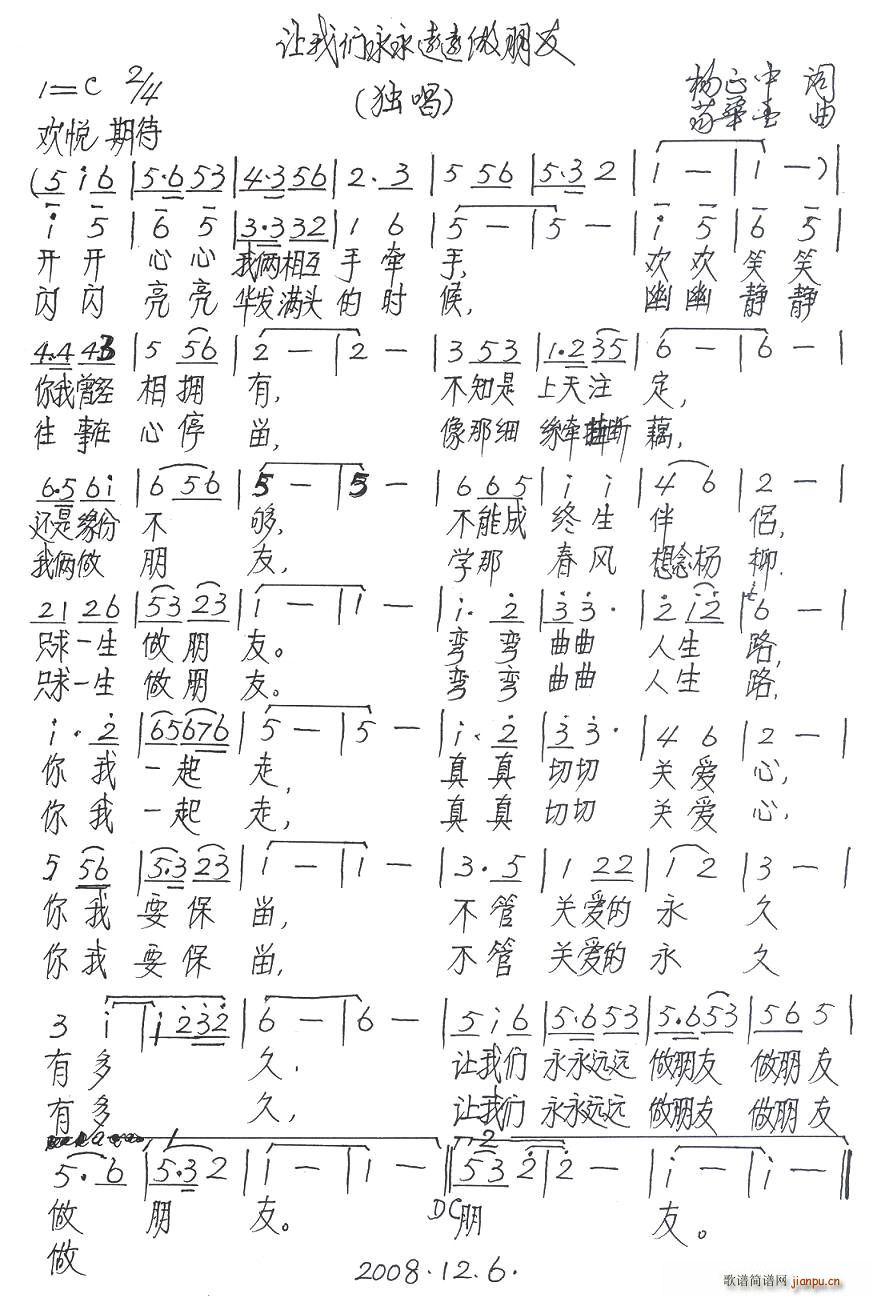 让我们永永遠遠做朋友
1=C 2/4
(独唱)
杨正中 词
曲
欢悦 期待
(5 i 6 | 5·6 53 | 4·3 56 | 2·3 | 5 56 | 5·3 2 | i — | 1 —)|
i 5 | 6 5 | 3·3 32 | 1 6 | 5 — | 5 — | i 5 | 6 5
开开 心心 我俩相互 手牵手, 欢欢 笑笑
闪闪 亮亮 华发满头 的时候, 幽幽 静静
4·4 43 | 5 56 | 2 — | 2 — | 3 53 | 1·2 35 | 6 — | 6 — |
你我曾经 相拥有, 不知是 上天注定,
往事在 心停留, 像那细 缘牵 断藕,
6·5 6i | 6 56 | 5 — | 5 — | 6 65 | i i | 4 6 | 2 — |
还是缘份 不够, 不能成 终生 伴侣,
我俩做 朋友, 学那 春风 想念杨柳.
21 26 | 53 23 | i — | 1 — | i· 2 | 3 3· | 2 i2 | 6 — |
只求一生 做朋友。 弯弯 曲曲 人生路,
只求一生 做朋友。 弯弯 曲曲 人生路,
i· 2 | 65 676 | 5 — | 5 — | i· 2 | 3 3· | 4 6 | 2 — |
你我 一起走, 真真 切切 关爱心,
你我 一起走, 真真 切切 关爱心.
5 56 | 5·3 23 | i — | 1 — | 3·5 | 1 22 | 1 2 | 3 — |
你我 要保留, 不管 关爱的 永久
你我 要保留, 不管 关爱的 永久
3 i | i 232 | 6 — | 6 — | 5 i 6 | 5·6 53 | 5·6 53 | 56 5 |
有多 久. 让我们 永永远远 做朋友 做朋友
有多 久, 让我们 永永远远 做朋友 做朋友
1 2
5·6 | 5·3 2 | i — | 1 — || 53 2 | 2 — | i — | i — ||
做 朋 友。 DC 朋 友。
做
2008.12.6.
歌谱简谱网 jianpu.cn